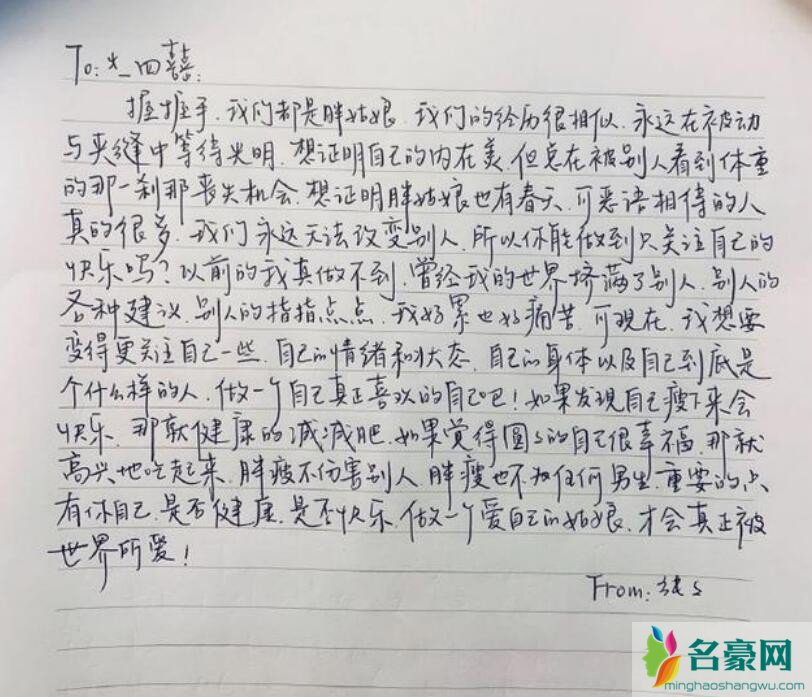 To: 尐_四囍:
握握手.我们都是胖姑娘.我们的经历很相似.永远在被动
与夹缝中等待光明.想证明自己的内在美.但总在被别人看到体重
的那一刹那丧失机会.想证明胖姑娘也有春天.可恶语相待的人
真的很多.我们永远无法改变别人.所以你能做到只关注自己的
快乐吗?以前的我真做不到.曾经我的世界挤满了别人.别人的
各种建议.别人的指指点点.我好累也好痛苦.可现在.我想要
变得更关注自己一些.自己的情绪和状态.自己的身体以及自己到底是
个什么样的人.做一个自己真正喜欢的自己吧!如果发现自己瘦下来会
快乐.那就健康的减减肥.如果觉得圆s的自己很幸福.那就
高兴地吃起来.胖瘦不伤害别人.胖瘦也不为任何男生.重要的点
有你自己.是否健康.是否快乐.做一个爱自己的姑娘.才会真正被
世界所爱!
From: s
名豪网
minghaoshangwu.com